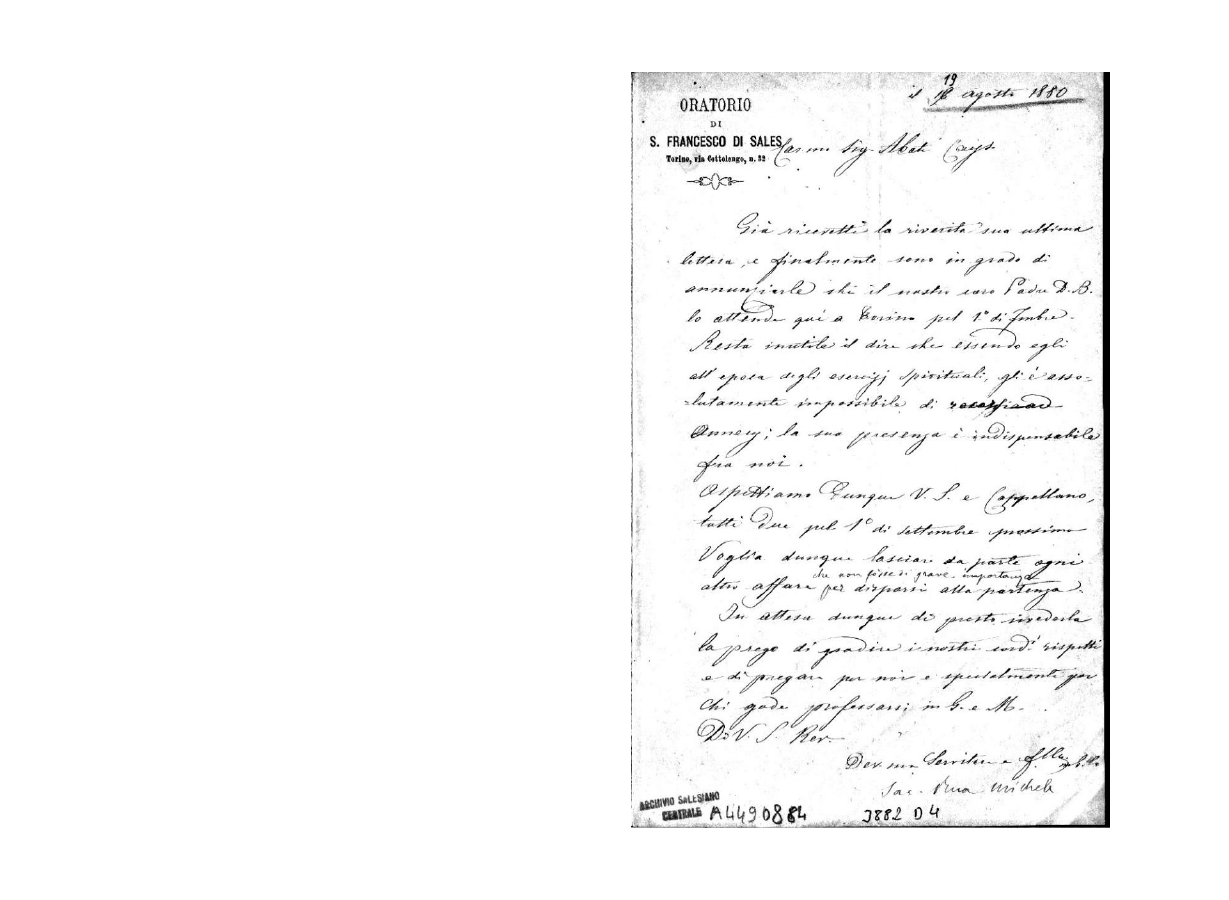 19
il 18 agosto 1880
ORATORIO
DI
S. FRANCESCO DI SALES
Torino, via Cottolengo, n. 32
Car.mo Sig. Abate
Già ricevetti la riverita sua ultima
lettera, e finalmente sono in grado di
annunziarle che il nostro caro Padre D. B.
lo attende quì a Torino pel 1° di 7mbre.
Resta inutile il dire che essendo egli
all'epoca degli esercizj spirituali, gli è asso-
lutamente impossibile di
Annecy; la sua presenza è indispensabile
fra noi.
Aspettiamo dunque V. S. e Cappellano,
tutti due pel 1° di settembre prossimo
Voglia dunque lasciare da parte ogni
che non fosse di grave importanza
altro affare per disporsi alla partenza.
In attesa dunque di presto rivederla
la prego di gradire i nostri cord.i rispetti
e di pregare per noi e specialmente per
chi gode professarsi in G. e M.
Di V. S. Rev.
Dev.mo Servitore e
Sac. Rua Michele
ARCHIVIO SALESIANO
CENTRALE
A4490884
3882 D4